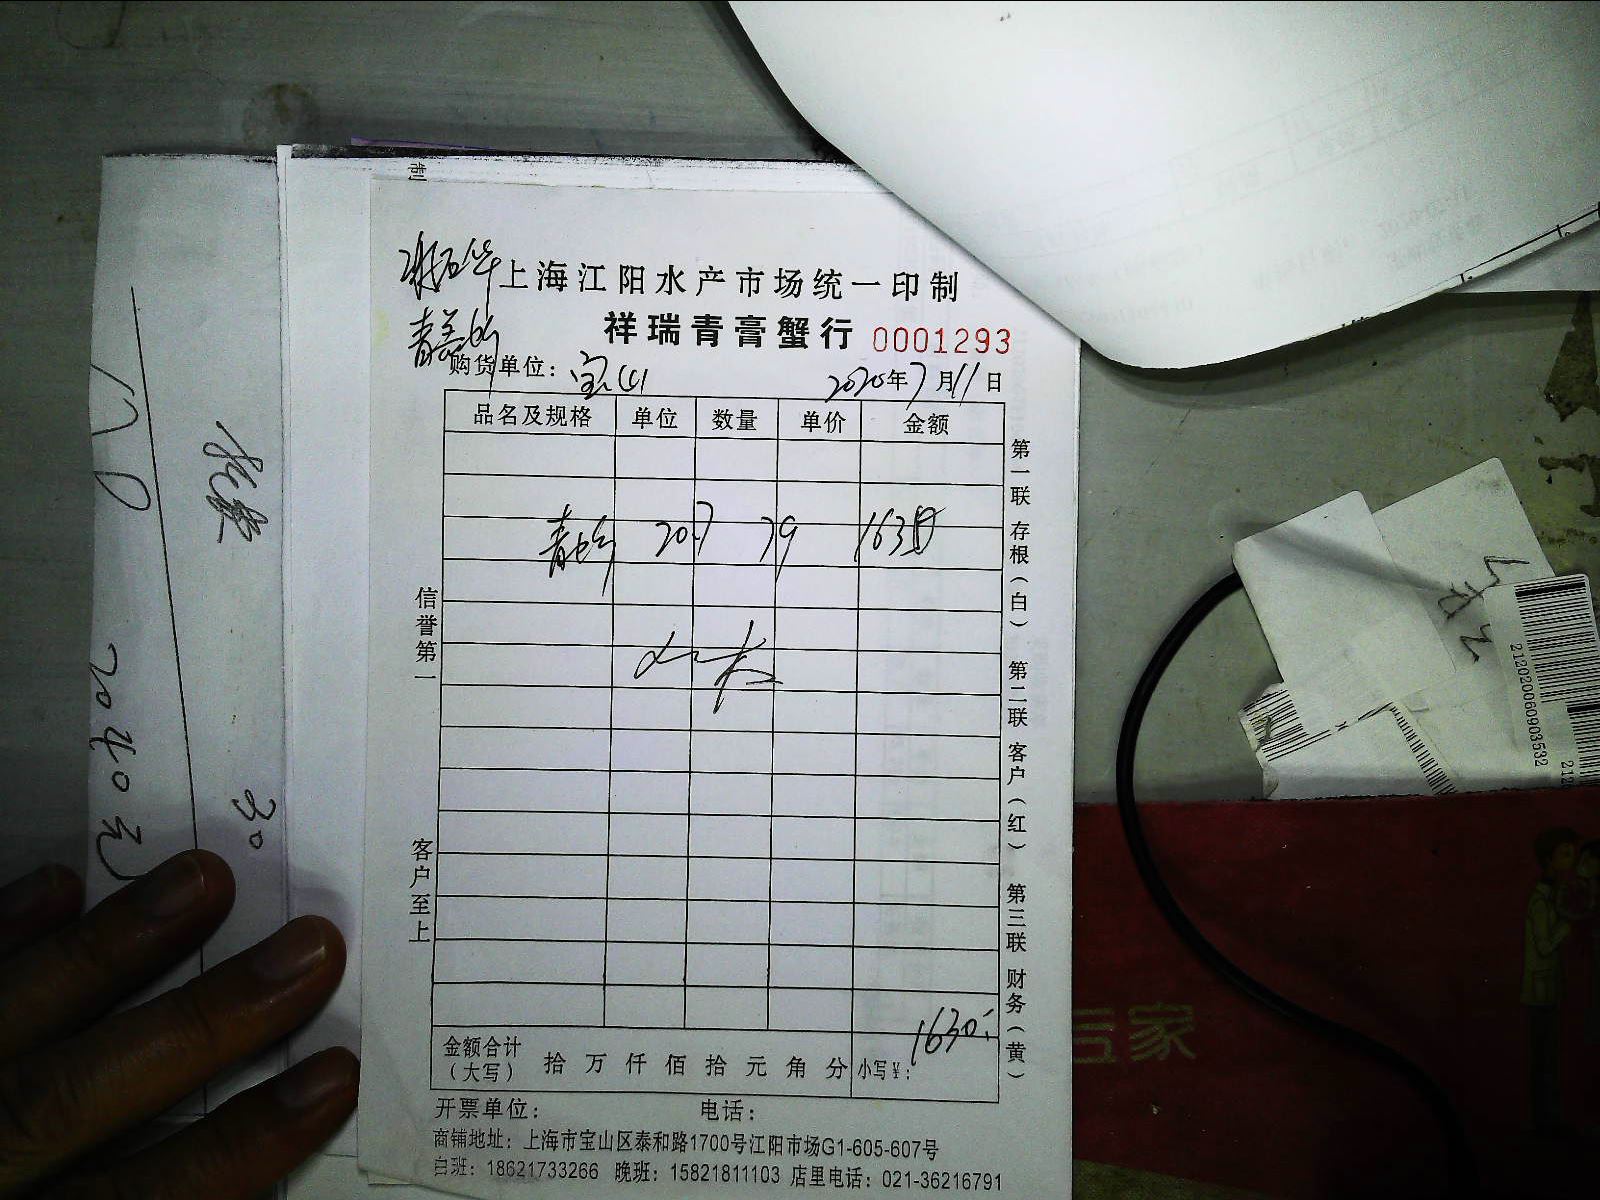 上海江阳水产市场统一印制
祥瑞青膏蟹行 0001293
购货单位：宝山 2020年7月11日
品名及规格 单位 数量 单价 金额
207 79 1635
1630
金额合计（大写） 拾 万 仟 佰 拾 元 角 分 小写¥：
开票单位： 电话：
商铺地址：上海市宝山区泰和路1700号江阳市场G1-605-607号
白班：18621733266 晚班：15821811103 店里电话：021-36216791
信誉第一
客户至上
第一联存根（白）
第二联客户（红）
第三联财务（黄）
2040元
30
212020060903532
212
言家